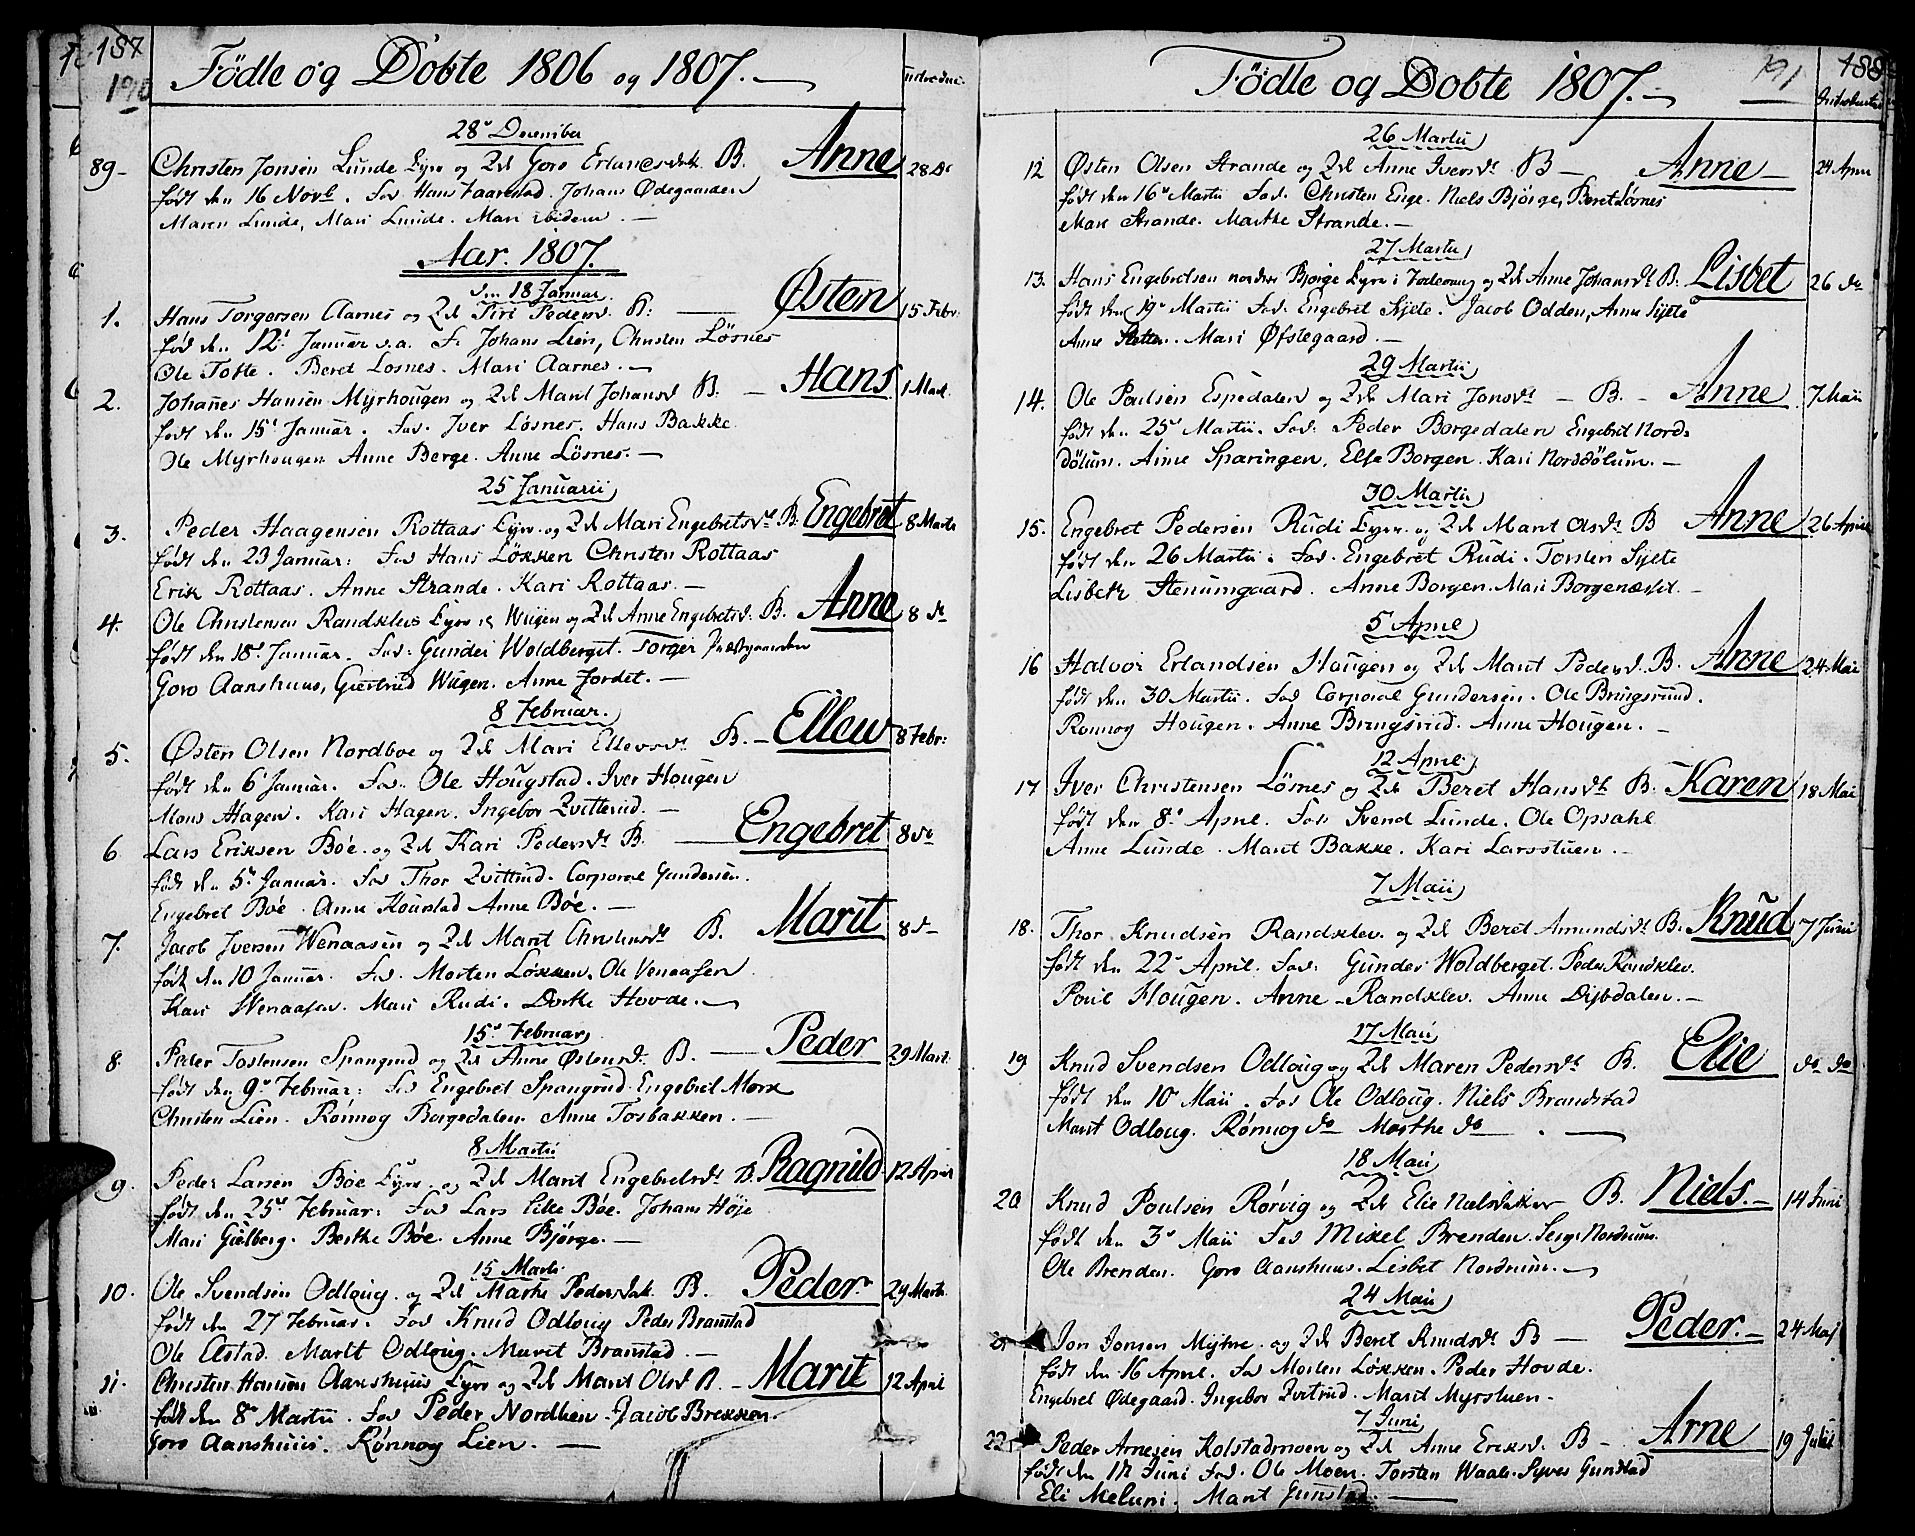 187
190
Fødte og Døbte 1806 og 1807.
28de December
89 Christen Jonsen Lunde Eyer og Zd Goro B. Anne 28 De
født den 16 Novb. Fad Hans Ødegaarden Johans
Maren Lunde, Mari Lunde. Mari ibidem.
Aar. 1807.
18 Januar
1. Hans Torgersen Aarnes og Zd Siri Pedersd. B: Østen 15 Febr.
fød den 12te Januar s.a. F. Johans Lien, Christen Løsnes
Ole Tofte. Beret Losnes. Mari Aarnes.
2. Johañes Hansen Myrhougen og Zd Marit Johansd B. Hans 1 Mart.
født den 15de Januar. Fad. Iver Løsnes. Hans Bakke
Ole Myrhougen Anne Berge. Anne Lösnes.
25 Januarii
3. Peder Haagensen Rottaas Eyer. og Zd Mari Engebretsdt B. Engebret 8 Marts
født den 23 Januar: Fad Hans Løkken Christen Rottaas
Erik Rottaas. Anne Strande. Kari Rottaas.
4. Ole Christensen Randklev Eyer og Wiigen og Zd Anne Engebretsd. B. Anne 8 do
født den 18de Januar. Fad. Gunder Woldberget. Torger Præstgaarden
Goro Aanshuus, Giertrud Wiigen. Anne Jordet.
8 Februar.
5. Østen Olsen Nordboe og Zd Mari Ellevsdt B. Ellew 8 Febr:
født den 6te Januar. Fad. Ole Hougstad. Iver Hougen
Mons Hagen. Kari Hagen. Ingebor Zvitterud.
6 Lars Eriksen Bøe. og Zd Kari Pedersdt B. Engebret 8 do
født den 5te Januar. Fad Thor Zvittrud. Corporal Gundersen.
Engebret Bøe. Anne Anne Bøe.
7. Jacob Iversen Wenaasen og Zd Marit Christensdt B. Marit 8 do
født den 10 Januar. Fad. Morten Løkken. Ole Venaasen
Kari Wenaasen. Mari Rudi. Dorte Hovde.
15de Februar
8. Peder Tostensen Spangrud og Zd Anne Østensdt. B. Peder 29 Mart.
født den 9de Februar: Fad Engebret Spangrud. Engebret Mork
Christen Lien. Rønnog Borgedalen. Anne Tosbakken.
8 Martii
9. Peder Larsen Bøe Eyer. og Zd Marit Engebretsdt B. Ragnild 12 April
født den 25de Februar: Fad Lars Eike Bøe. Johans Höje
Mari Gielberg. Berthe Bøe. Anne Bjørge.
15 Marts
10. Ole Svendsen Odloug. og Zd Marthe Pedersdat. B. Peder 29 Marts.
født den 27 Februar. Fad Knud Odloug Peder Branstad
Ole Alstad. Marit Odloug. Marit Branstad.
11. Christen Hansen Aanshuus Eyer og Zd Marit Olsd B. Marit 12 April
født den 8de Martii. Fad Peder Nordlien. Jacob Brekken.
Goro Aanshuus. Rønnog Lien.
Fødte og Døbte 1807.
191
188
26 Martii
12 Østen Olsen Strande og Zd Anne Iversdt. B Anne 24 April
født den 16de Martii Fad. Christen Enge. Niels Bjørge, Beret Lösnes
Mari Strande. Marthe Strande.
27 Martii
13. Hans Engebretsen nordre Bjørge Eyer i og Zd Anne Johansdt B. Lisbet 26 do
født den 19de Martii Fad. Engebret Sjete. Jacob Odden, Anne Sjete
Anne Mari Øfstegaard.
29 Martii
14. Ole Poulsen Espedalen og Zd Mari Jonsdt B. Anne 7 Maii
født den 25de Martii. Fad: Peder Borgedalen Engebret Nord-
dölum. Anne Sparingen. Else Borgen. Kari Norddölum.
30 Martii
15. Engebret Pedersen Rudi Eyer. og Zd Marit Olsdt B Anne 26 April
født den 26 Martii. Fad. Engebret Rudi. Torsten Sjete
Lisbeth Stenumgaard. Anne Borgen. Mari Borgenæset.
5 April
16 Halvor Erlandsen Hougen og Zd Marit Pedersd. B. Anne 24 Maii
født den 30 Martii. Fad Corporal Gundersen. Ole Bringsrud.
Rønnog Hougen. Anne Bringsrud. Anne Hougen.
12 April
17 Iver Christensen Lösnes og Zd Beret Hansdt B. Karen 18 Maii
født den 8de April. Fad Svend Lunde. Ole Opsahl
Anne Lunde. Marit Bakke. Kari Larsstuen.
7 Maii
18. Thor Knudsen Randklev. og Zd Beret Amundsdt B. Knud 7 Junii
født den 22de April. Fad: Gunder Woldberget. Peder Randklev.
Poul Hougen. Anne Randklev. Anne Dybdalen.
17 Maii
19 Knud Svendsen Odloug og Zd Maren Pedersdt B. Elie do do
født den 10de Maii. Fad Ole Odloug. Niels Brandstad
Marit Odloug. Rønnog do Marthe do
18 Maii
20 Knud Poulsen Rørvig og Zd Elie Nielsdatter B. Niels. 14 Juni
født den 3de Maii Fad Mikel Brenden. Nordrum.
Ole Brenden. Goro Aanshuus. Lisbet Nordrum.
24 Maii
21 Jon Jonsen Mytre. og Zd Beret Knudsdt B Peder. 24 Maj
født den 16 April. Fad Morten Løkken. Peder Hovde.
Engebret Ødegaard. Ingebor Zvitrud. Marit Myrstuen.
7 Juni
22. Peder Arnesen Kolstadmoen og Zd Anne Eriksd. B Arne 19 Julii
født den 1te Juni Fad. Ole Moen. Torsten Waale. Syver Gunstad
Eli Melum. Marit Gunstad.